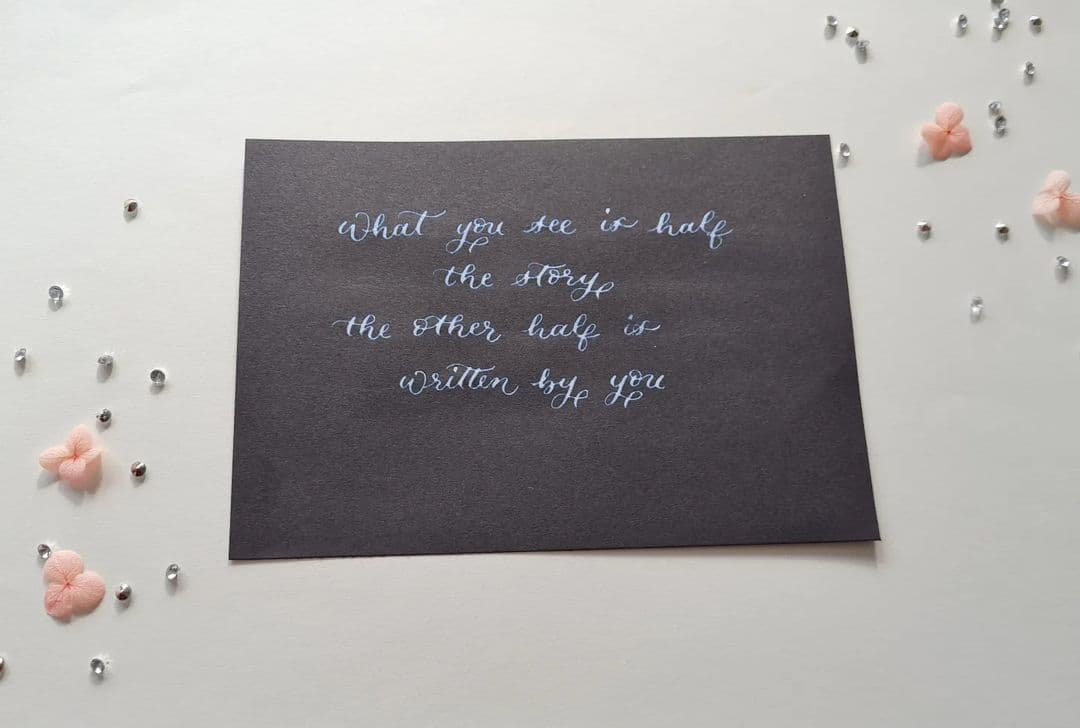 what you see is half
the story
the other half is
written by you